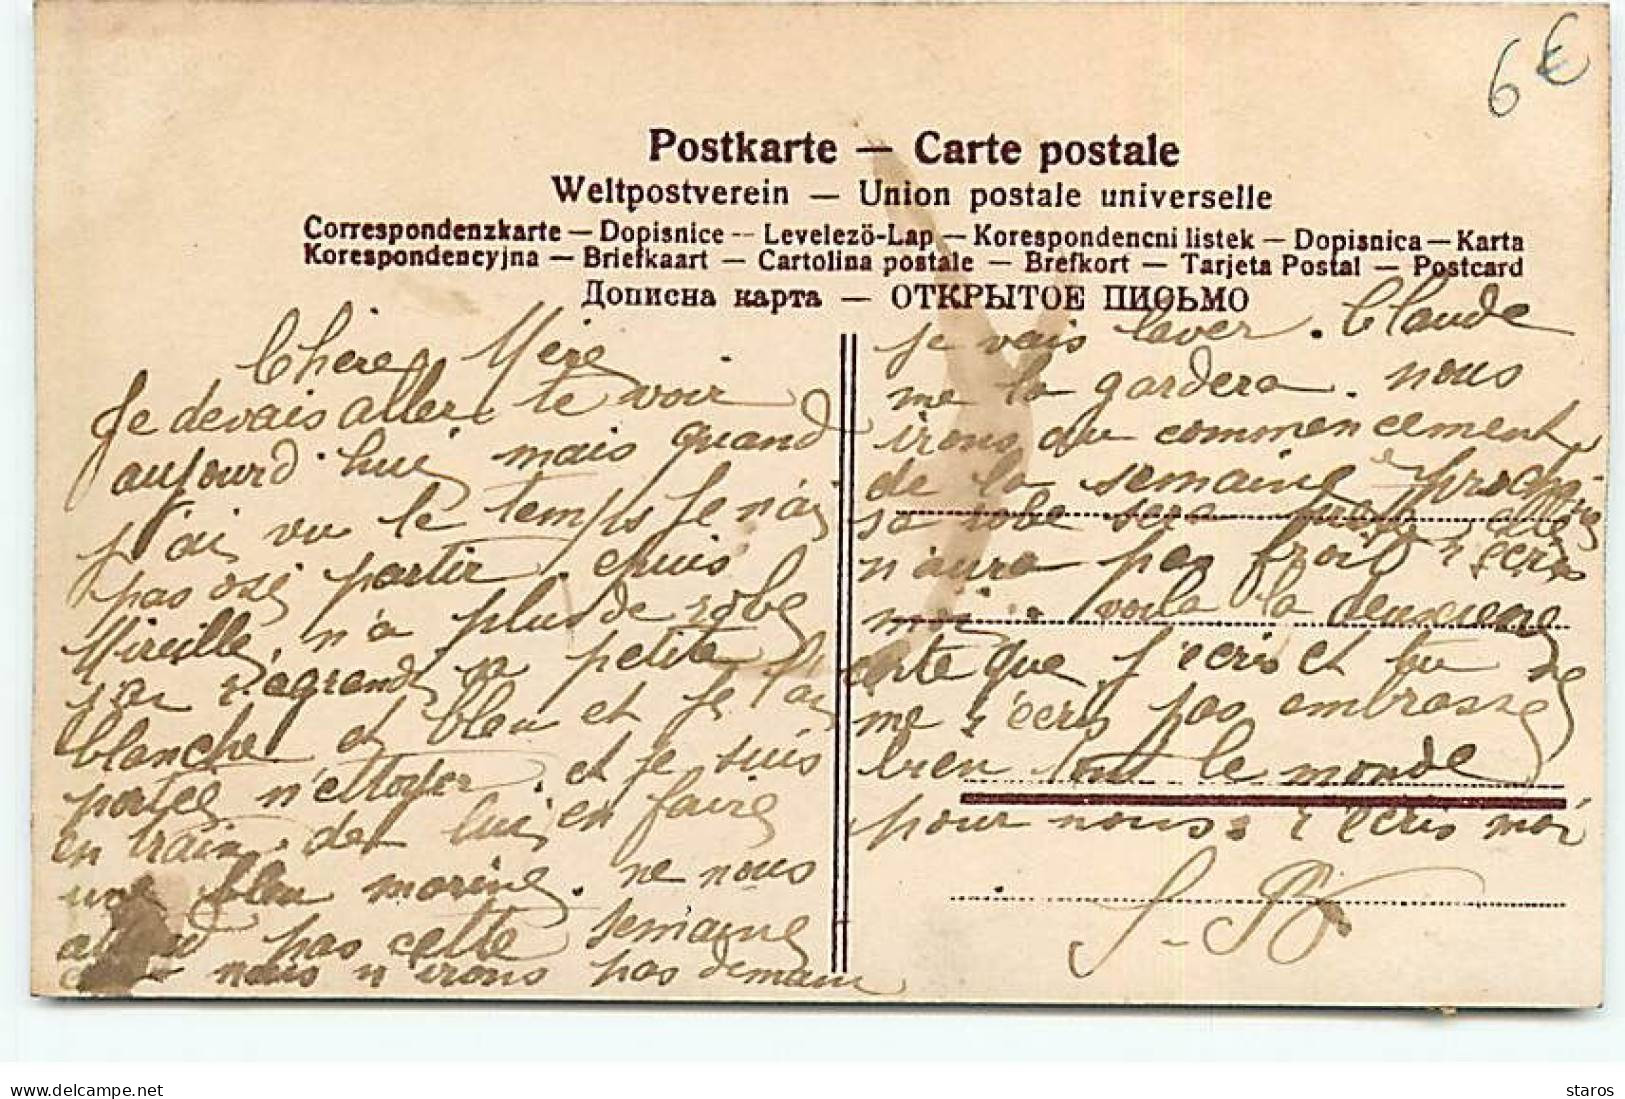 6€
Postkarte — Carte postale
Weltpostverein — Union postale universelle
Correspondenzkarte — Dopisnice -- Levelezö-Lap — Korespondencni listek — Dopisnica — Karta
Korespondencyjna — Briefkaart — Cartolina postale — Brefkort — Tarjeta Postal — Postcard
Дописна карта — ОТКРЫТОЕ ПИСЬМО
Chère Mère
Je devais aller te voir
aujourd'hui mais quand
j'ai vu le temps je n'ai
pas osé partir. puis
Mireille n'a plus de robe
petite
blanche et bleu et je l'ai
portée n'ettoyer. et je suis
en train de lui en faire
une bleu marine. ne nous
attend pas cette semaine
nous n'irons pas demain
je vais laver. Claude
me la gardera. nous
irons au commencement
de la semaine prochaine
sa robe sera
n'aura pas froid écris
moi. voila la deuxieme
carte que j'ecris et tu ne
me r'écris pas embrasse
bien tout le monde
pour nous. r'écris moi
delcampe.net
staros